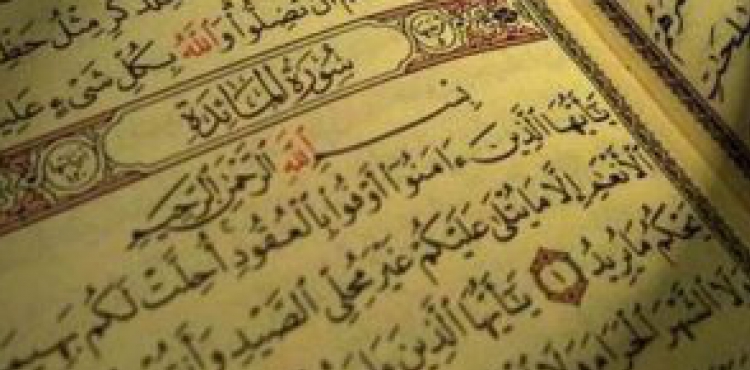 مِثْلُ حَظِّ
أَن تَضِلُّوا۟ وَٱللَّهُ بِكُلِّ شَىْءٍ
سُورَةُ المَائِدَةِ
بِسْمِ ٱللَّهِ ٱلرَّحْمَٰنِ ٱلرَّحِيمِ
يَٰٓأَيُّهَا ٱلَّذِينَ ءَامَنُوٓا۟ أَوْفُوا۟ بِٱلْعُقُودِ أُحِلَّتْ لَكُم
ٱلْأَنْعَٰمِ إِلَّا مَا يُتْلَىٰ عَلَيْكُمْ غَيْرَ مُحِلِّى ٱلصَّيْدِ وَأَنتُمْ
يَحْكُمُ مَا يُرِيدُ ١ يَٰٓأَيُّهَا ٱلَّذِينَ
وَلَا ٱلشَّهْرَ ٱلْحَرَامَ وَلَا